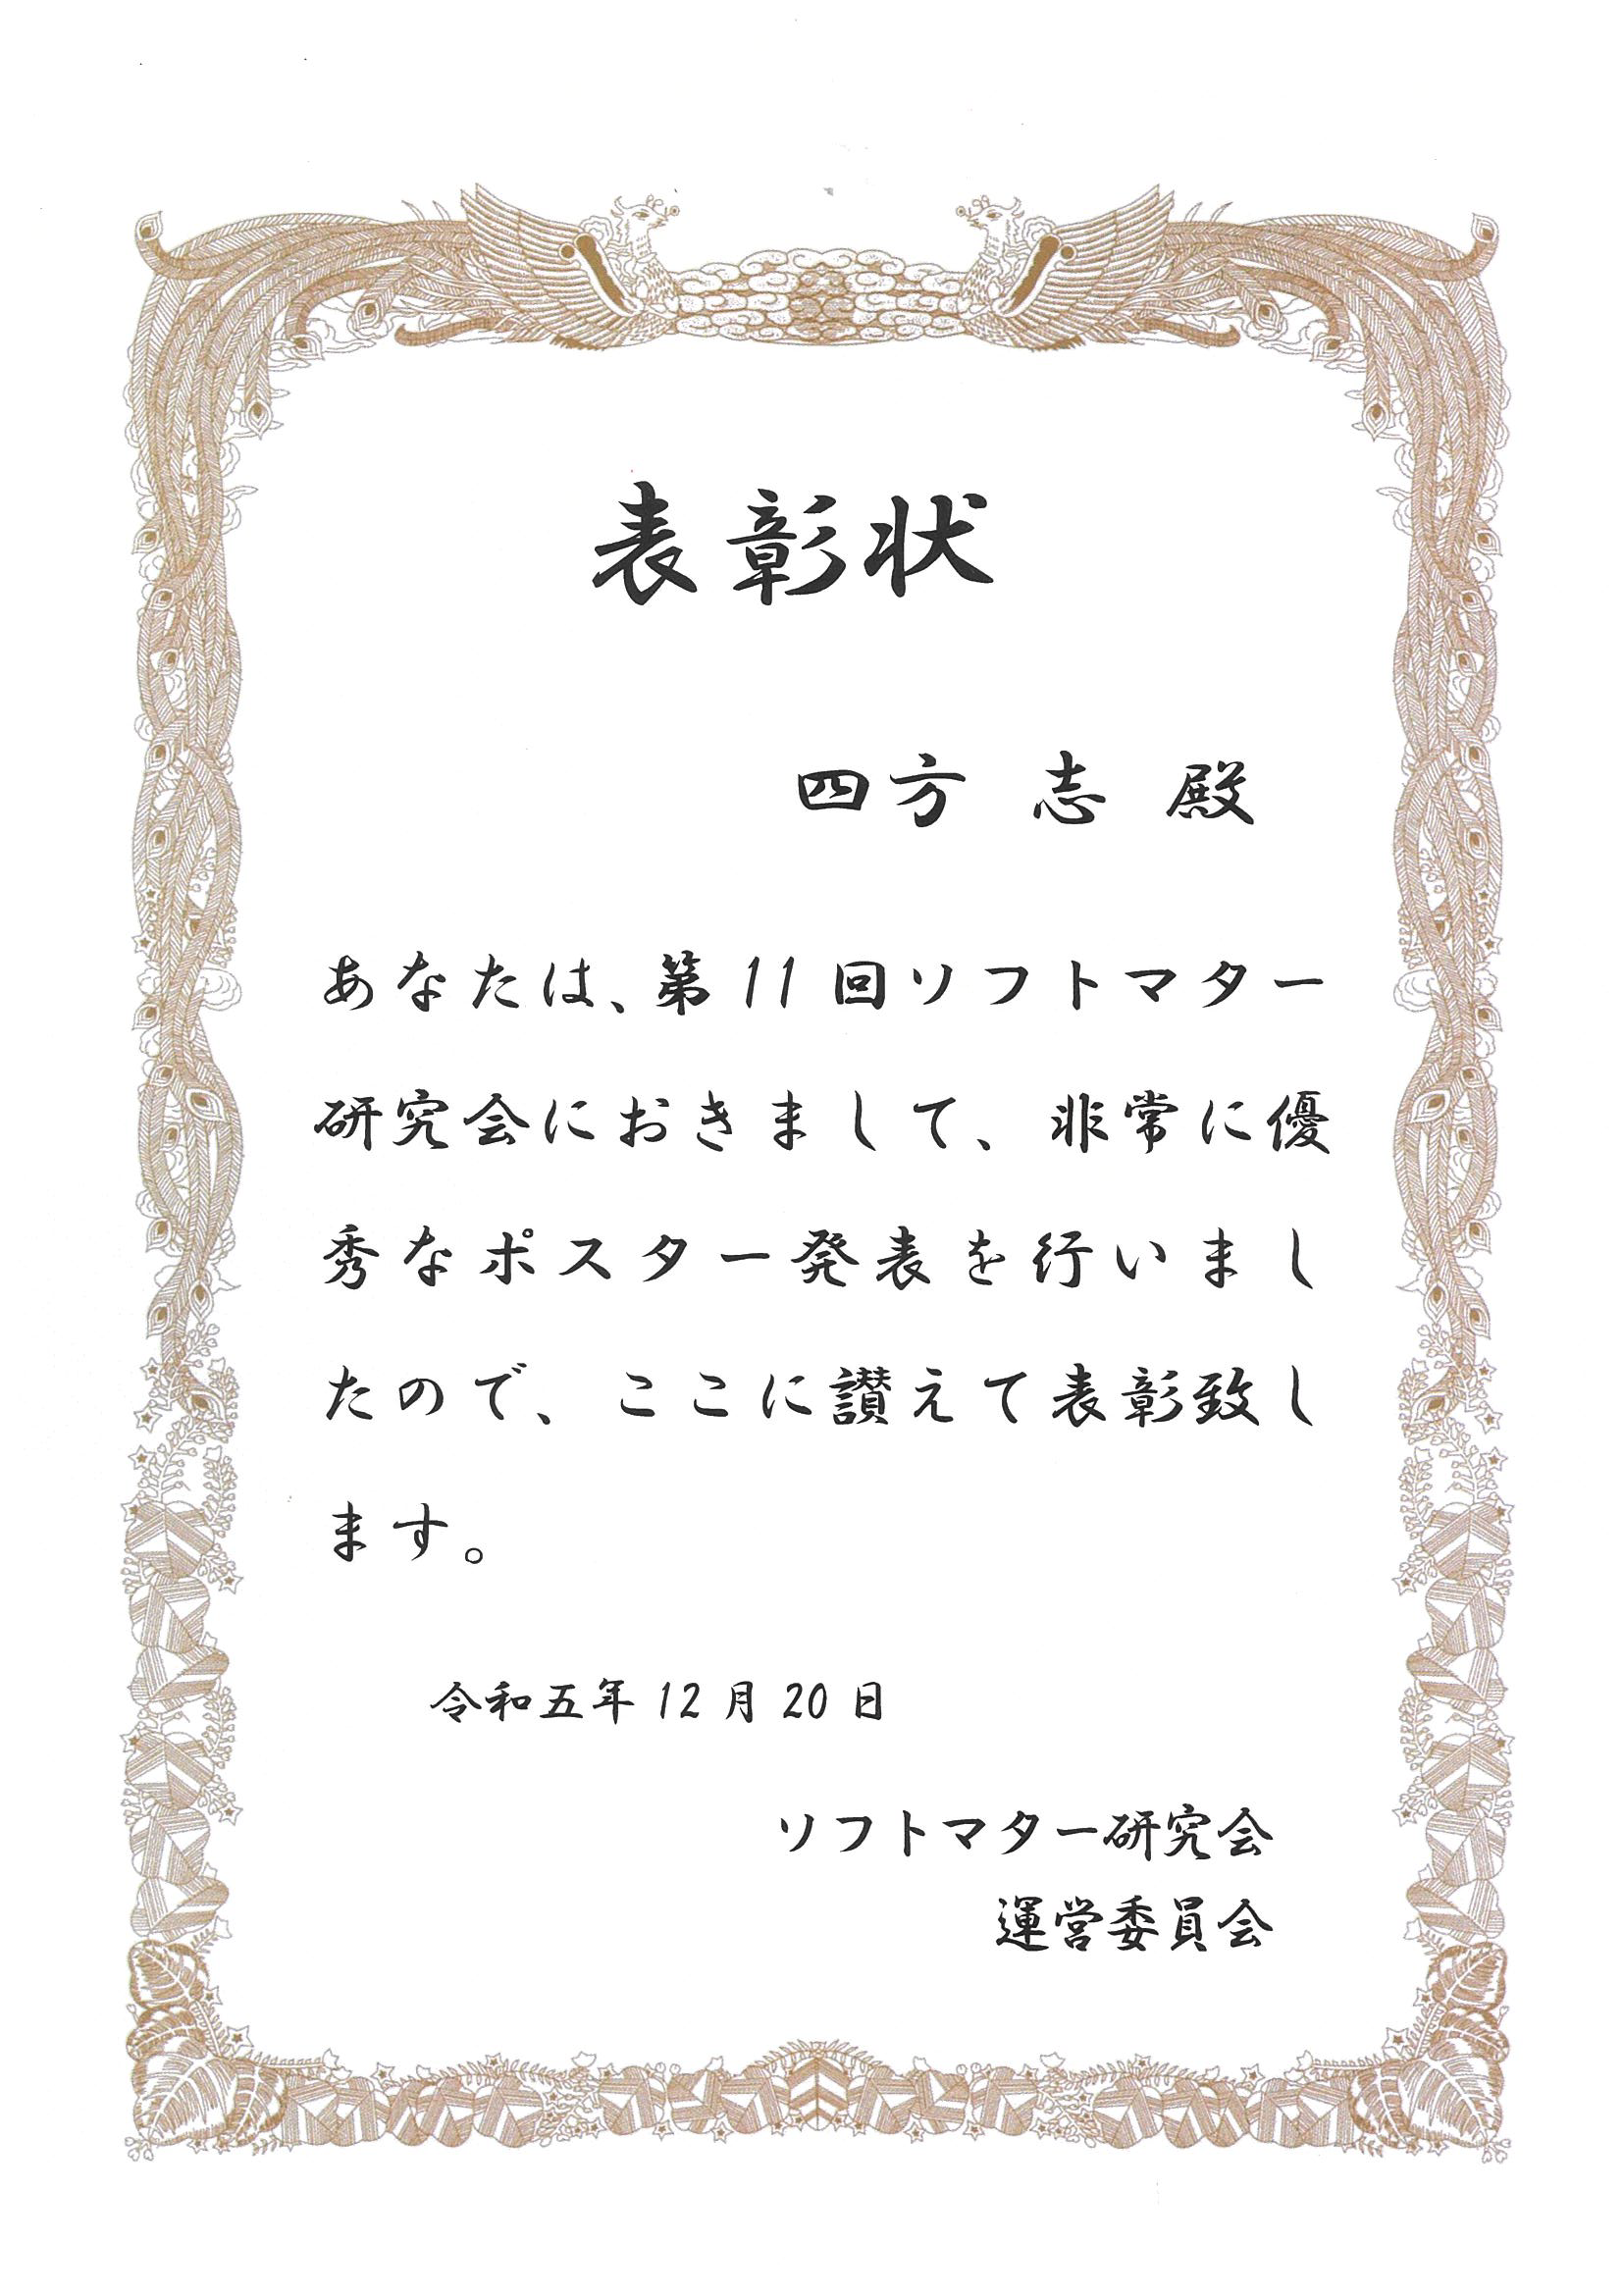 表彰状
四方 志 殿
あなたは、第11回ソフトマター
研究会におきまして、非常に優
秀なポスター発表を行いまし
たので、ここに讃えて表彰致し
ます。
令和五年12月20日
ソフトマター研究会
運営委員会